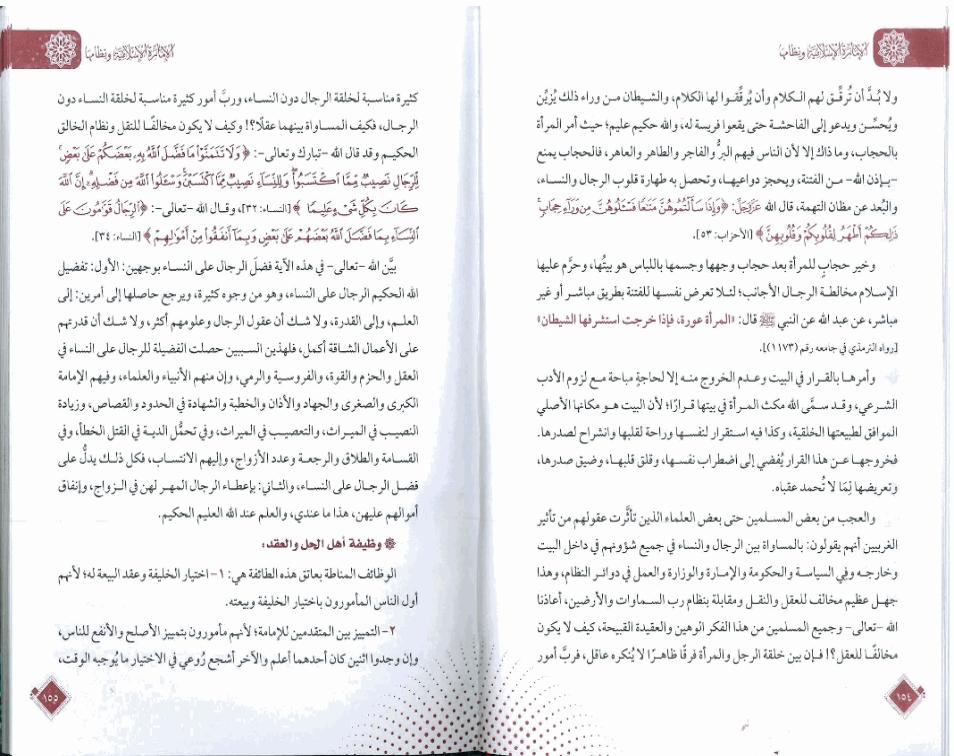 الإمارة الإسلامية ونظامها
ولا بُدَّ أن تُرقَّق لهم الكلام وأن يُرقِّقوا لها الكلام، والشيطان من وراء ذلك يُزيّن
ويُحسِّن ويدعو إلى الفاحشة حتى يقعوا فريسة له، والله حكيم عليم؛ حيث أمر المرأة
بالحجاب، وما ذاك إلا لأن الناس فيهم البرُّ والفاجر والطاهر والعاهر، فالحجاب يمنع
-بإذن الله- من الفتنة، ويحجز دواعيها، وتحصل به طهارة قلوب الرجال والنساء،
والبُعد عن مظان التهمة، قال الله عَزَّوَجَلَّ: ﴿وَإِذَا سَأَلْتُمُوهُنَّ مَتَٰعًا فَسْـَٔلُوهُنَّ مِن وَرَآءِ حِجَابٍ ۚ
ذَٰلِكُمْ أَطْهَرُ لِقُلُوبِكُمْ وَقُلُوبِهِنَّ﴾ [الأحزاب: ٥٣].
وخير حجابٍ للمرأة بعد حجاب وجهها وجسمها باللباس هو بيتُها، وحرَّم عليها
الإسلام مخالطة الرجال الأجانب؛ لئلا تعرض نفسها للفتنة بطريق مباشر أو غير
مباشر، عن عبد الله عن النبي ﷺ قال: «المرأة عورة، فإذا خرجت استشرفها الشيطان»
[رواه الترمذي في جامعه رقم (١١٧٣)].
وأمرها بالقرار في البيت وعدم الخروج منه إلا لحاجةٍ مباحة مع لزوم الأدب
الشرعي، وقد سمَّى الله مكث المرأة في بيتها قرارًا؛ لأن البيت هو مكانها الأصلي
الموافق لطبيعتها الخلقية، وكذا فيه استقرار لنفسها وراحة لقلبها وانشراح لصدرها.
فخروجها عن هذا القرار يُفضي إلى اضطراب نفسها، وقلق قلبها، وضيق صدرها،
وتعريضها لِمَا لا تُحمد عقباه.
والعجب من بعض المسلمين حتى بعض العلماء الذين تأثَّرت عقولهم من تأثير
الغربيين أنهم يقولون: بالمساواة بين الرجال والنساء في جميع شؤونهم في داخل البيت
وخارجه وفي السياسة والحكومة والإمارة والوزارة والعمل في دوائر النظام، وهذا
جهل عظيم مخالف للعقل والنقل ومقابلة بنظام رب السماوات والأرضين، أعاذنا
الله -تعالى- وجميع المسلمين من هذا الفكر الوهين والعقيدة القبيحة، كيف لا يكون
مخالفًا للعقل؟! فإن بين خلقة الرجل والمرأة فرقًا ظاهرًا لا يُنكره عاقل، فربَّ أمور
١٥٤
الإمارة الإسلامية ونظامها
كثيرة مناسبة لخلقة الرجال دون النساء، وربَّ أمور كثيرة مناسبة لخلقة النساء دون
الرجال، فكيف المساواة بينهما عقلًا؟! وكيف لا يكون مخالفًا للنقل ونظام الخالق
الحكيم وقد قال الله -تبارك وتعالى-: ﴿وَلَا تَتَمَنَّوْا۟ مَا فَضَّلَ ٱللَّهُ بِهِۦ بَعْضَكُمْ عَلَىٰ بَعْضٍ ۚ
لِّلرِّجَالِ نَصِيبٌ مِّمَّا ٱكْتَسَبُوا۟ ۖ وَلِلنِّسَآءِ نَصِيبٌ مِّمَّا ٱكْتَسَبْنَ ۚ وَسْـَٔلُوا۟ ٱللَّهَ مِن فَضْلِهِۦٓ ۗ إِنَّ ٱللَّهَ
كَانَ بِكُلِّ شَىْءٍ عَلِيمًا﴾ [النساء: ٣٢]، وقال الله -تعالى-: ﴿ٱلرِّجَالُ قَوَّٰمُونَ عَلَى
ٱلنِّسَآءِ بِمَا فَضَّلَ ٱللَّهُ بَعْضَهُمْ عَلَىٰ بَعْضٍ وَبِمَآ أَنفَقُوا۟ مِنْ أَمْوَٰلِهِمْ﴾ [النساء: ٣٤].
بيَّن الله -تعالى- في هذه الآية فضلَ الرجال على النساء بوجهين؛ الأول: تفضيل
الله الحكيم الرجال على النساء، وهو من وجوه كثيرة، ويرجع حاصلها إلى أمرين: إلى
العلم، وإلى القدرة، ولا شك أن عقول الرجال وعلومهم أكثر، ولا شك أن قدرتهم
على الأعمال الشاقة أكمل، فلهذين السببين حصلت الفضيلة للرجال على النساء في
العقل والحزم والقوة، والفروسية والرمي، وإن منهم الأنبياء والعلماء، وفيهم الإمامة
الكبرى والصغرى والجهاد والأذان والخطبة والشهادة في الحدود والقصاص، وزيادة
النصيب في الميراث، والتعصيب في الميراث، وفي تحمُّل الدية في القتل الخطأ، وفي
القسامة والطلاق والرجعة وعدد الأزواج، وإليهم الانتساب، فكل ذلك يدلُّ على
فضل الرجال على النساء، والثاني: بإعطاء الرجال المهر لهن في الزواج، وإنفاق
أموالهم عليهن، هذا ما عندي، والعلم عند الله العليم الحكيم.
وظيفة أهل الحل والعقد:
الوظائف المناطة بعاتق هذه الطائفة هي: ١- اختيار الخليفة وعقد البيعة له؛ لأنهم
أول الناس المأمورون باختيار الخليفة وبيعته.
٢- التمييز بين المتقدمين للإمامة؛ لأنهم مأمورون بتمييز الأصلح والأنفع للناس،
وإن وجدوا اثنين كان أحدهما أعلم والآخر أشجع رُوعي في الاختيار ما يُوجبه الوقت،
١٥٥